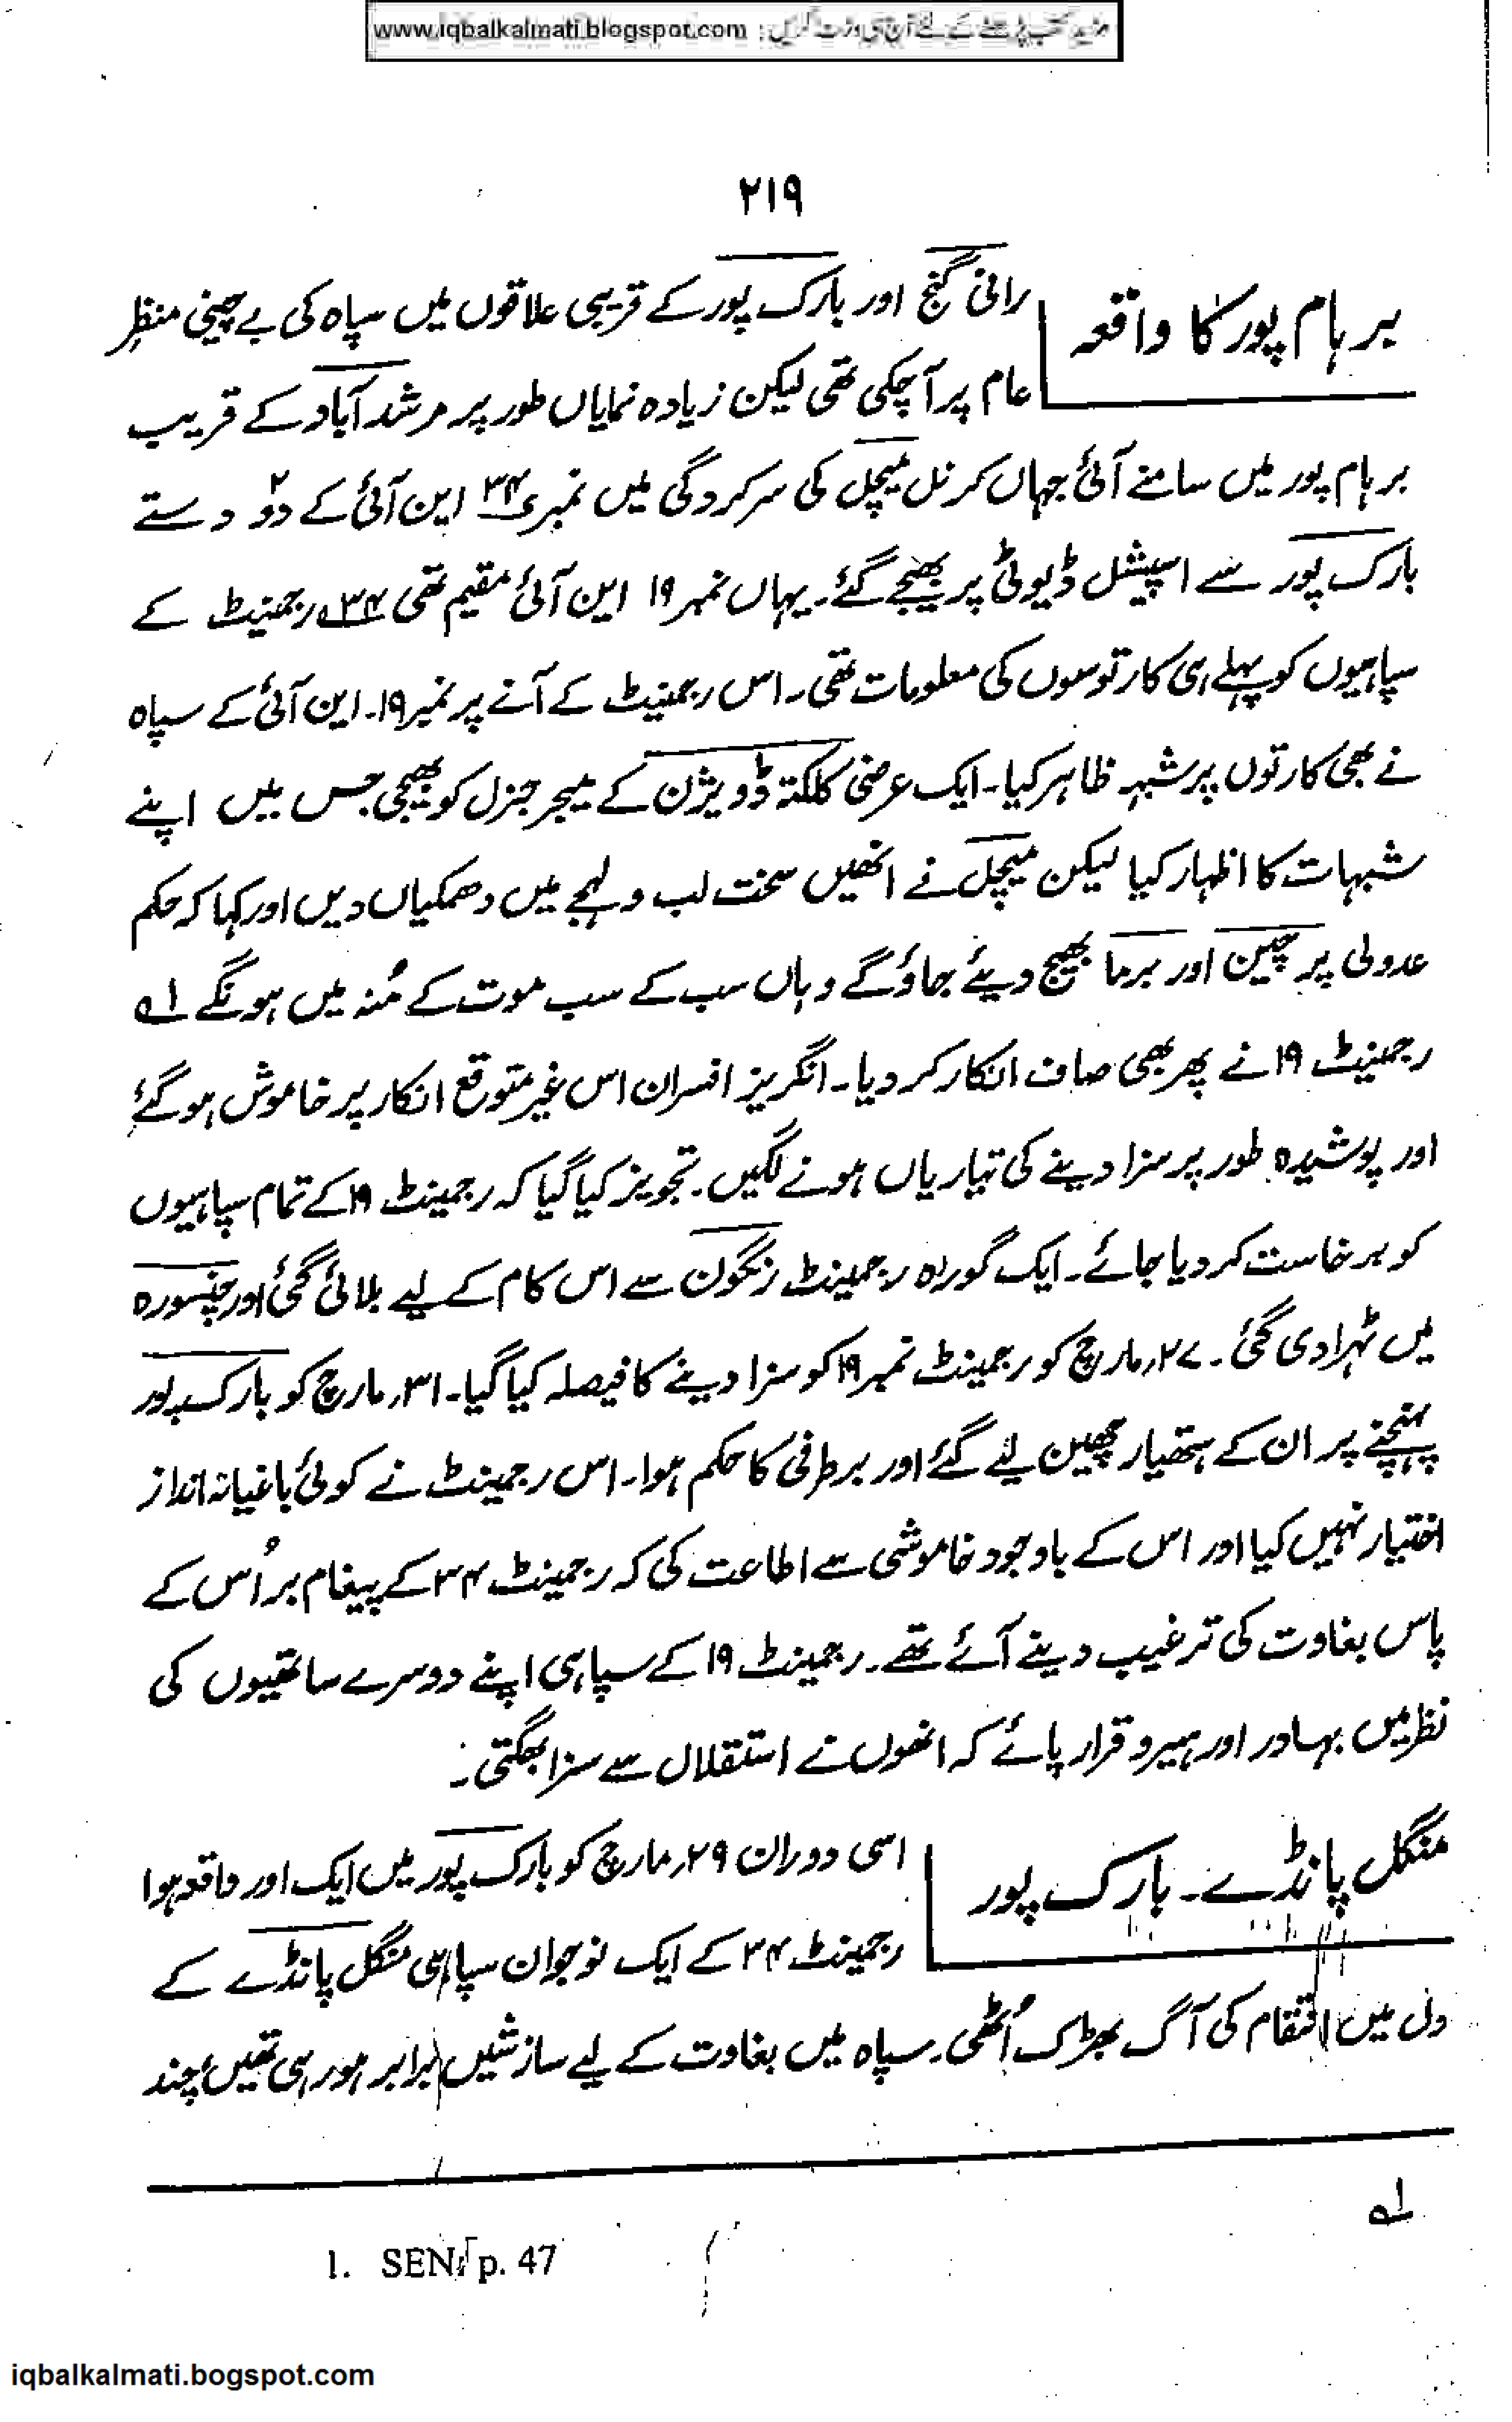 مزید کتب پڑھنے کے لئے آج ہی وزٹ کریں : www.iqbalkalmati.blogspot.com
۲۱۹
برہام پور کا واقعہ
رانی گنج اور بارک پور کے قریبی علاقوں میں سپاہ کی بے چینی منظرِ
عام پر آچکی تھی لیکن زیادہ نمایاں طور پر مرشد آباد کے قریب
برہام پور میں سامنے آئی جہاں کرنل میچل کی سرکردگی میں نمبر ۳۴ این آئی کے دو ۲ دستے
بارک پور سے اسپیشل ڈیوٹی پر بھیجے گئے۔ یہاں نمبر ۱۹ این آئی مقیم تھی ۳۴ رجمنیٹ کے
سپاہیوں کو پہلے ہی کارتوسوں کی معلومات تھی۔ اس رجمنیٹ کے آنے پر نمبر ۱۹۔ این آئی کے سپاہ
نے بھی کارتوں پر شبہہ ظاہر کیا۔ ایک عرضی کلکتہ ڈویژن کے میجر جنرل کو بھیجی جس میں اپنے
شبہات کا اظہار کیا لیکن میچل نے انھیں سخت لب و لہجے میں دھمکیاں دیں اور کہا کہ حکم
عدولی پر چین اور برما بھیج دیئے جاؤ گے وہاں سب کے سب موت کے مُنہ میں ہونگے ؎۱
رجمنیٹ ۱۹ نے پھر بھی صاف انکار کر دیا۔ انگریز افسران اس غیر متوقع انکار پر خاموش ہو گئے
اور پوشیدہ طور پر سزا دینے کی تیاریاں ہونے لگیں۔ تجویز کیا گیا کہ رجمینٹ ۱۹ کے تمام سپاہیوں
کو برخاست کر دیا جائے۔ ایک گورہ رجمینٹ رنگون سے اس کام کے لیے بلائی گئی اور چنسورہ
میں ٹہرا دی گئی۔ ۲۷؍مارچ کو رجمینٹ نمبر ۱۹ کو سزا دینے کا فیصلہ کیا گیا۔ ۳۱؍مارچ کو بارک پور
پہنچنے پر ان کے ہتھیار چھین لیے گئے اور برطرفی کا حکم ہوا۔ اس رجمینٹ نے کوئی باغیانہ انداز
اختیار نہیں کیا اور اس کے باوجود خاموشی سے اطاعت کی کہ رجمینٹ ۳۴ کے پیغام بر اُس کے
پاس بغاوت کی ترغیب دینے آئے تھے۔ رجمینٹ ۱۹ کے سپاہی اپنے دوسرے ساتھیوں کی
نظر میں بہادر اور ہیرو قرار پائے کہ انھوں نے استقلال سے سزا بھگتی۔
منگل پانڈے۔ بارک پور
اسی دوران ۲۹؍مارچ کو بارک پور میں ایک اور واقعہ ہوا
رجمینٹ ۳۴ کے ایک نوجوان سپاہی منگل پانڈے کے
دل میں انتقام کی آگ بھڑک اُٹھی۔ سپاہ میں بغاوت کے لیے سازشیں برابر ہو رہی تھیں، چند
؎۱
1. SEN, p. 47
iqbalkalmati.bogspot.com